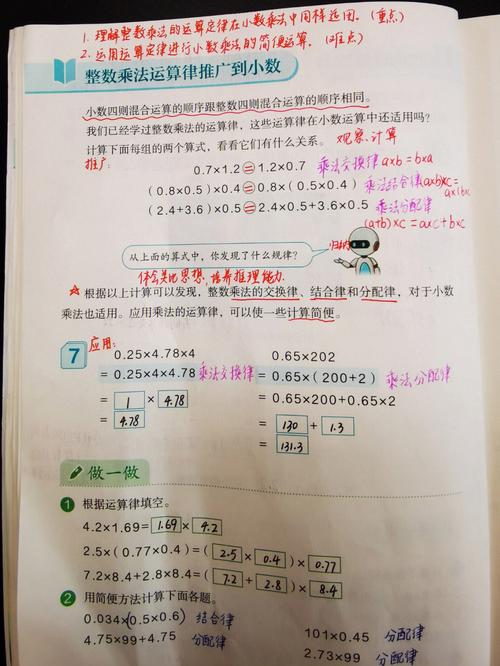 1. 理解整数乘法的运算定律在小数乘法中同样适用。(重点)
2. 运用运算定律进行小数乘法的简便运算。(难点)
整数乘法运算律推广到小数
小数四则混合运算的顺序跟整数四则混合运算的顺序相同。
我们已经学过整数乘法的运算律，这些运算律在小数运算中还适用吗?
计算下面每组的两个算式，看看它们有什么关系。 观察、计算
推广:
0.7×1.2=1.2×0.7 乘法交换律 a×b=b×a
(0.8×0.5)×0.4=0.8×(0.5×0.4) 乘法结合律(a×b)×c=
a×(b×c)
(2.4+3.6)×0.5=2.4×0.5+3.6×0.5 乘法分配律
(a+b)×c=a×c+b×c
从上面的算式中，你发现了什么规律? 归纳
体会类比思想，培养推理能力.
☆ 根据以上计算可以发现，整数乘法的交换律、结合律和分配律，对于小数
乘法也适用。应用乘法的运算律，可以使一些计算简便。
应用:
7 0.25×4.78×4 0.65×202
=0.25×4×4.78 乘法交换律 =0.65×(200+2) 乘法分配律
= 1 × 4.78 =0.65×200+0.65×2
= 4.78 = 130 + 1.3
= 131.3
做一做
1 根据运算律填空。
4.2×1.69= 1.69 × 4.2
2.5×(0.77×0.4)=( 2.5 × 0.4 )× 0.77
7.2×8.4+2.8×8.4=( 7.2 + 2.8 )× 8.4
2 用简便方法计算下面各题。
0.034×(0.5×0.6) 结合律 101×0.45 分配律
4.75×99+4.75 分配律 2.73×99 分配律